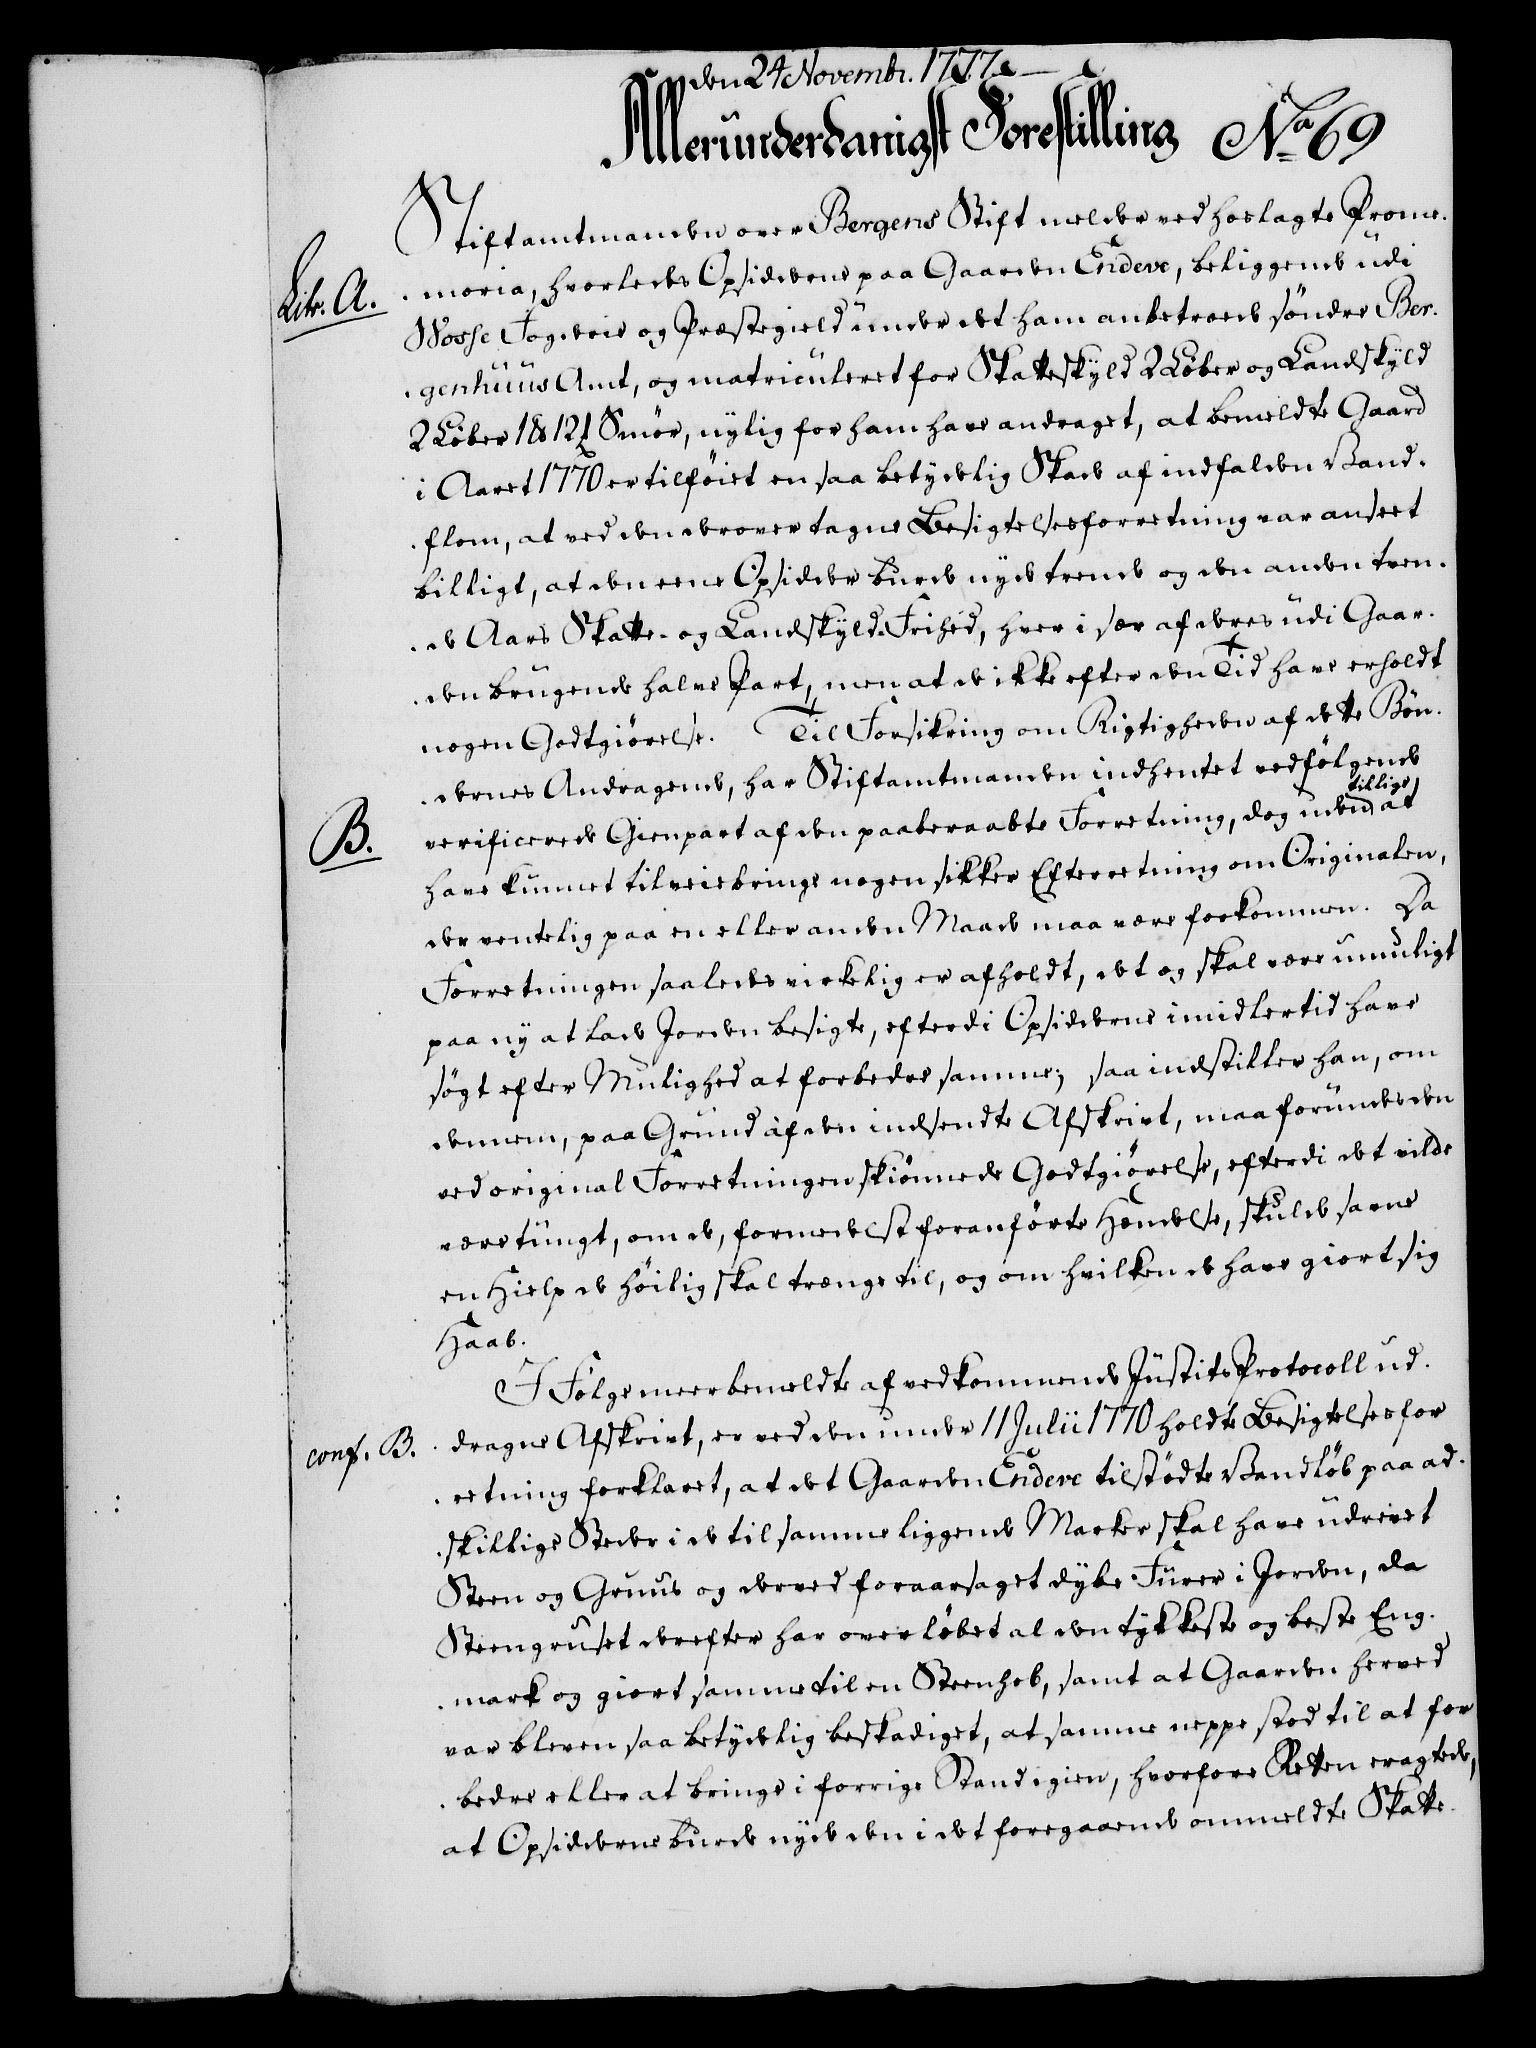 den 24 Novembr. 1777.
Allerunderdanigst Forestilling No 69
Stiftamtmanden over Bergens Stift melder ved hoslagte Prome-
Litr. A. moria, hvorledes Opsidderne paa Gaarden Endeve, beliggende udi
Wosse Fogderie og Præstegield under det ham anbetroede söndre Ber-
genhuus Amt, og matriculeret for Skatteskyld 2 Løber og Landskyld
2 Løber 1 12 Smör, nylig for ham have andraget, at bemeldte Gaard
i Aaret 1770 er tilföiet en saa betydelig Skade af indfalden Vand-
flom, at ved den derover tagne Besigtelsesforretning var anseet
billigt, at den eene Opsidder burde nyde trende og den anden tven-
de Aars Skatte- og Landskyld-Frihed, hver i sær af deres udi Gaar-
den brugende halve Part, men at de ikke efter den Tid have erholdt
nogen Godtgiörelse. Til Forsikring om Rigtigheden af dette Bön-
dernes Andragende, har Stiftamtmanden indhentet vedfölgende
B. verificerede Gienpart af den paaberaabte Forretning, dog uden tillige at
have kunnet tilveiebringe nogen sikker Efterretning om Originalen,
der ventelig paa en eller anden Maade maa være forkommen. Da
Forretningen saaledes virkelig er afholdt, det og skal være umuligt
paa ny at lade Jorden besigte, efterdi Opsidderne imidlertid have
sögt efter Mulighed at forbedre samme; saa indstiller han, om
dennem, paa Grund af den indsendte Afskrivt, maa forundes den
ved original Forretningen skiönnede Godtgiörelse, efterdi det vilde
være tungt, om de, formedelst foranförte Hændelse, skulde savne
en Hielp de höilig skal trænge til, og om hvilken de have giort sig
Haab.
I Fölge meerbemeldte af vedkommende Justits Protocoll ud-
conf. B. dragne Afskrivt, er ved den under 11 Julii 1770 holdte Besigtelsesfor
retning forklaret, at det Gaarden Endeve tilstödte Vandlöb paa ad-
skillige Steder i de til samme liggende Marker skal have udrevet
Steen og Gruus og derved foraarsaget dybe Furer i Jorden, da
Steengruset derefter har overlöbet al den tykkeste og beste Eng-
mark og giort samme til en Steenhob, samt at Gaarden herved
var bleven saa betydelig beskadiget, at samme neppe stod til at for
bedre eller at bringe i forrige Stand igien, hvorfore Retten eragtede,
at Opsidderne burde nyde den i det foregaaende ommeldte Skatte-